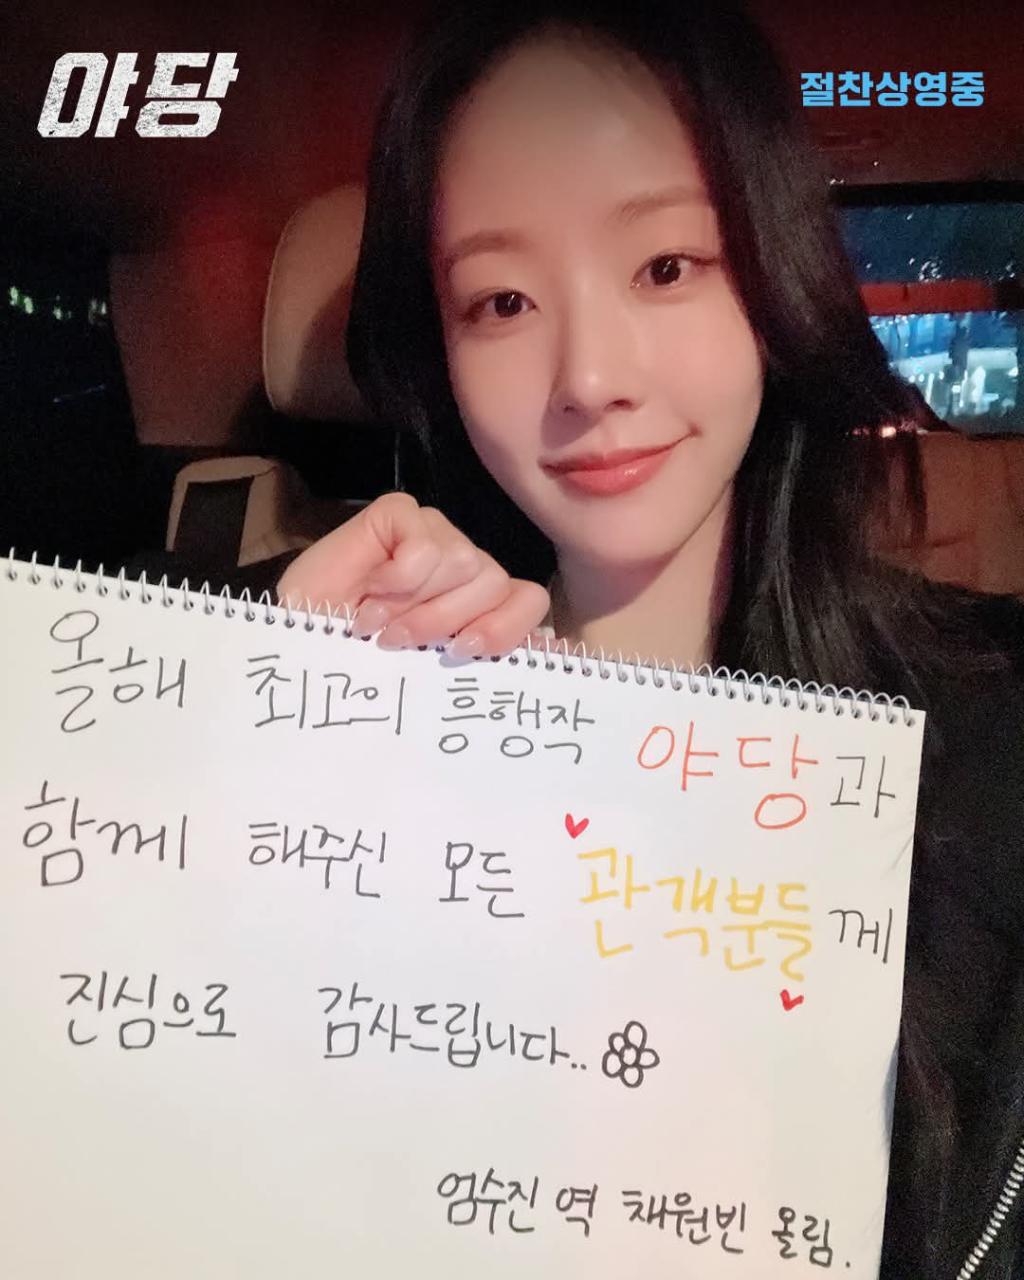 야당
절찬상영중
올해 최고의 흥행작 야당과
함께 해주신 모든 관객분들께
진심으로 감사드립니다..
엄수진 역 채원빈 올림.